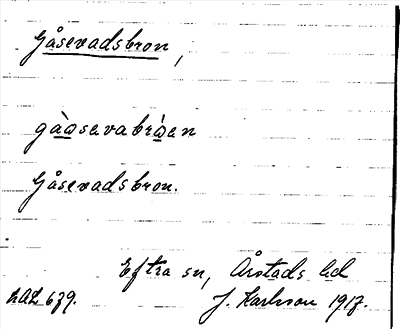 Gåsevadsbron,
gåosevabròen
Gåsevadsbron.
Eftra sn, Årstads hd
LAL 639. J. Karlsson 1917.